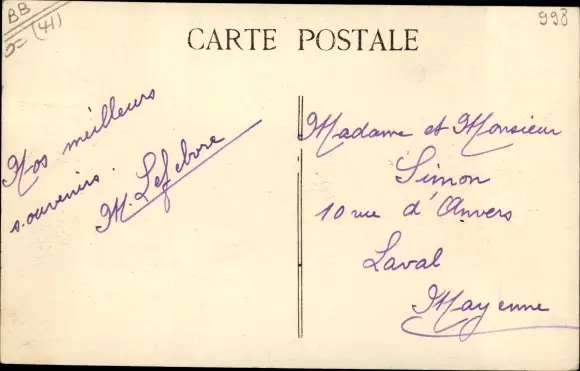 BB
(41)
998
CARTE POSTALE
Nos meilleurs
souvenirs.
M. Lefebvre
Madame et Monsieur
Simon
10 rue d'Anvers
Laval
Mayenne